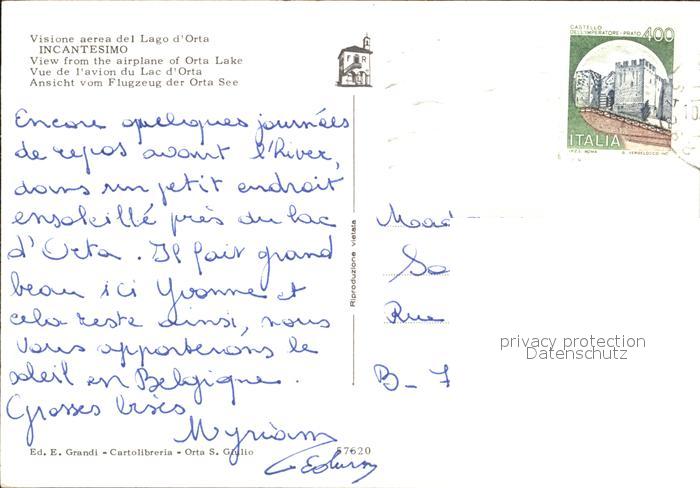 Visione aerea del Lago d'Orta
INCANTESIMO
View from the airplane of Orta Lake
Vue de l'avion du Lac d'Orta
Ansicht vom Flugzeug der Orta See
CASTELLO
DELL'IMPERATORE - PRATO 400
ITALIA
I.P.Z.S. ROMA
Encore quelques journées
de repos avant l'hiver,
dans un petit endroit
ensoleillé près du lac
d'Orta. Il fait grand
beau ici Yvonne et
cela reste ainsi, nous
vous apporterons le
soleil en Belgique.
Grosses bises
Myriam
Riproduzione vietata
Rue
B-7
privacy protection
Datenschutz
Ed. E. Grandi - Cartolibreria - Orta S. Giulio
57620